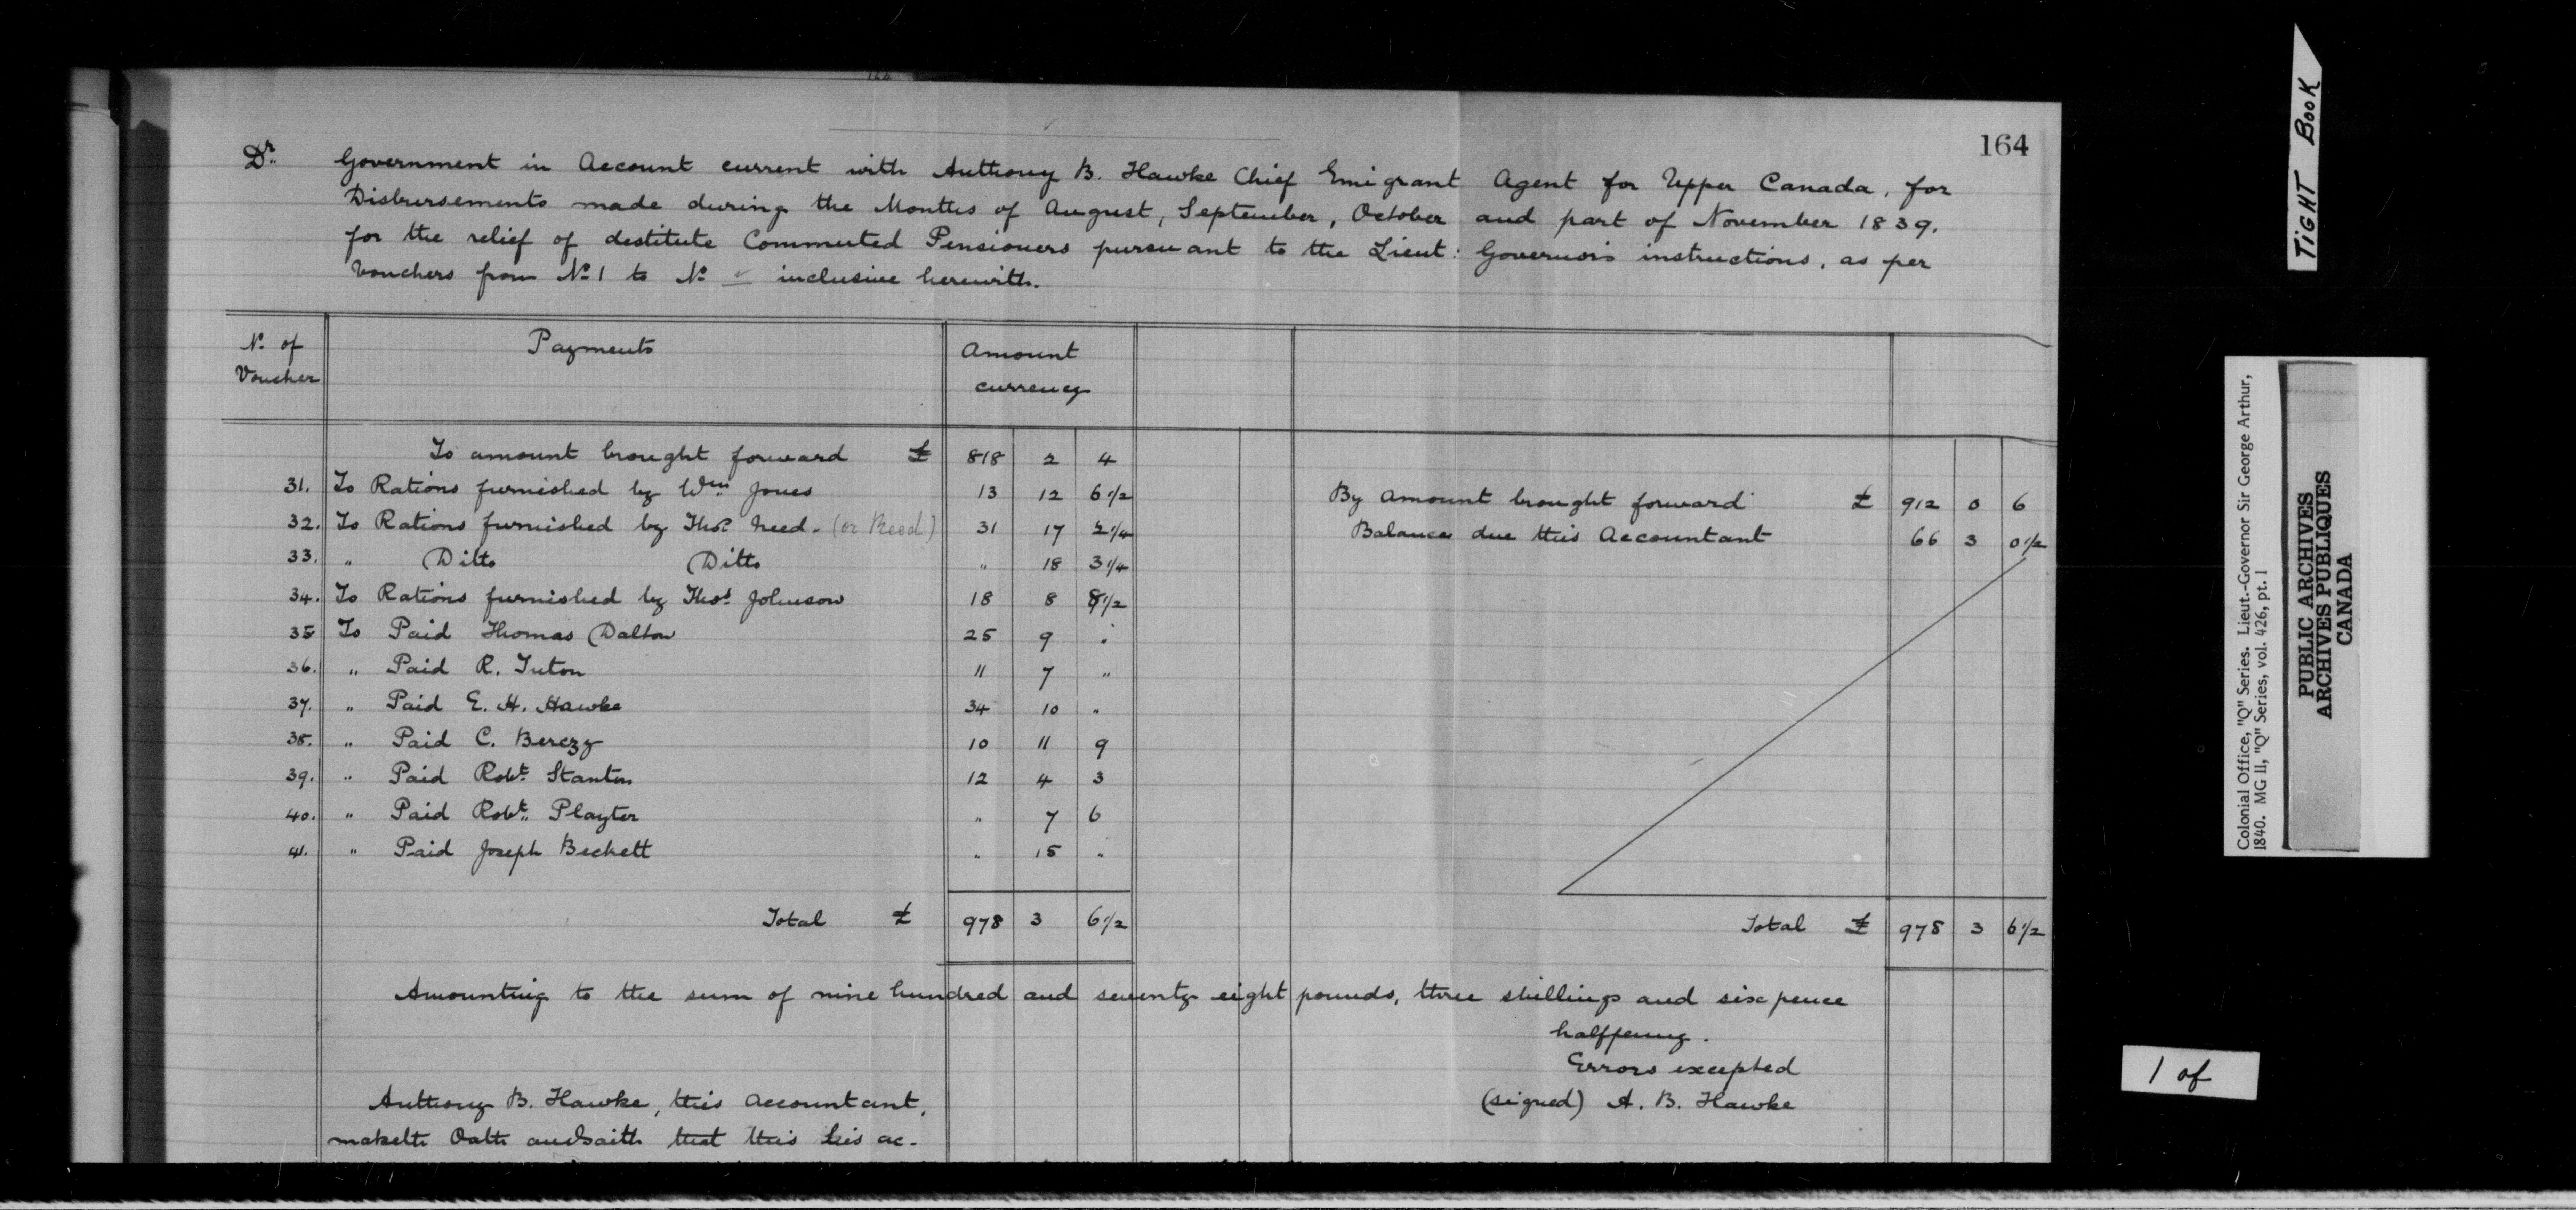 164
Dr. Government in Account current with Anthony B. Hawke Chief Emigrant Agent for Upper Canada, for
Disbursements made during the Months of August, September, October and part of November 1839.
for the relief of destitute Commuted Pensioners pursuant to the Lieut: Governor's instructions, as per
Vouchers from No. 1 to No. inclusive herewith.
No. of Voucher | Payments | Amount currency
To amount brought forward £ 818 2 4
31. To Rations furnished by Wm Jones 13 12 6 1/2
32. To Rations furnished by Thos. Need. (or Reed) 31 17 2 1/4
33. " Ditto Ditto " 18 3 1/4
34. To Rations furnished by Thos. Johnson 18 8 8 1/2
35 To Paid Thomas Dalton 25 9 "
36. " Paid R. Tuton 11 7 "
37. " Paid E. H. Hawke 34 10 "
38. " Paid C. Berczy 10 11 9
39. " Paid Robt. Stanton 12 4 3
40. " Paid Robt. Playter " 7 6
41. " Paid Joseph Beckett " 15 "
Total £ 978 3 6 1/2
By Amount brought forward £ 912 0 6
Balance due this Accountant 66 3 0 1/2
Total £ 978 3 6 1/2
Amounting to the sum of nine hundred and seventy eight pounds, three shillings and six pence
halfpenny.
Errors excepted
(signed) A. B. Hawke
Anthony B. Hawke, this accountant,
maketh Oath and saith that this his ac-
TIGHT BOOK
Colonial Office, "Q" Series. Lieut.-Governor Sir George Arthur,
1840. MG 11, "Q" Series, vol. 426, pt. 1
PUBLIC ARCHIVES
ARCHIVES PUBLIQUES
CANADA
1 of